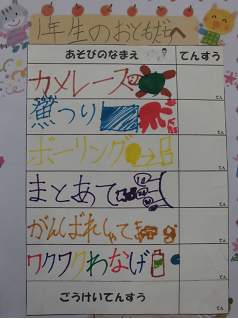 1年生のおともだちへ
あそびのなまえ てんすう
カメレース てん
魚つり てん
ボーリング てん
まとあて てん
がんばれしゃてき てん
ワクワクわなげ てん
ごうけいてんすう